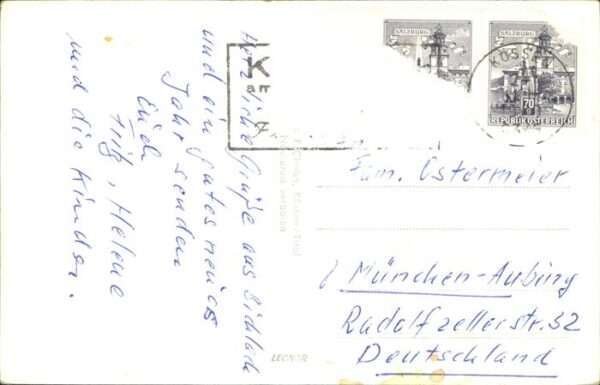 Herzliche Grüße aus Bichlach
und ein gutes neues
Jahr senden
Euch
Fritz, Helene
und die Kinder.
SALZBURG
SALZBURG
70
REPUBLIK ÖSTERREICH
KÖSS
Fam. Ostermeier
München-Aubing
Radolfzellerstr. 32
Deutschland